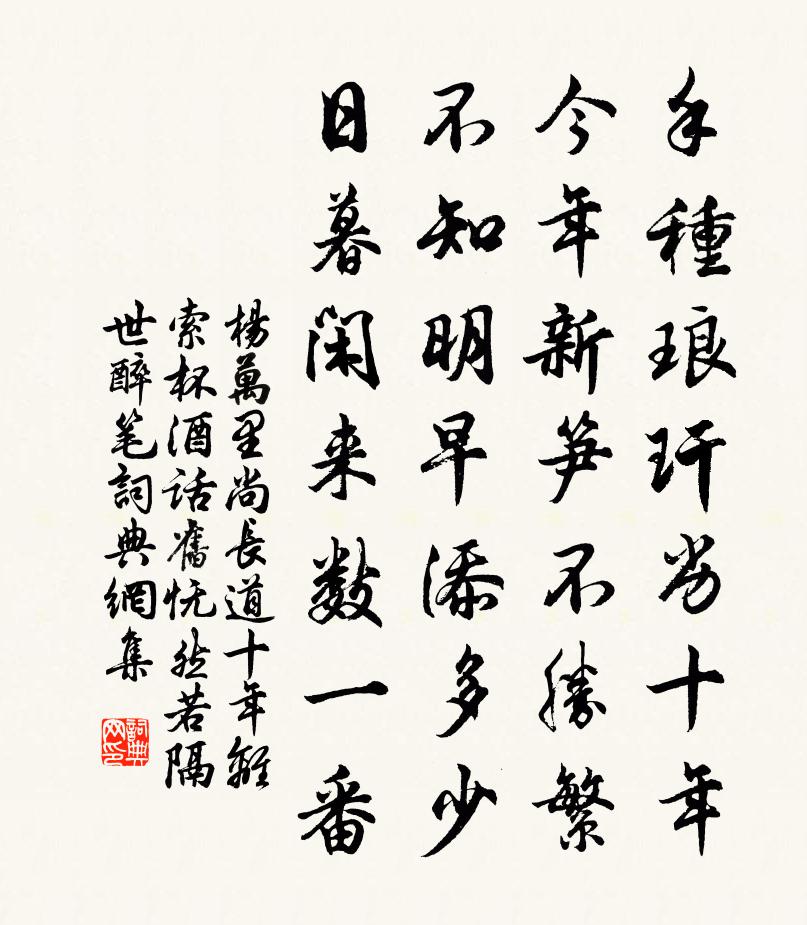 手種琅玕劣十年
今年新笋不勝繁
不知明早添多少
日暮閑来数一番
楊萬里尚長道十年離
索杯酒話舊恍然若隔
世醉笔詞典網集
詞典网印